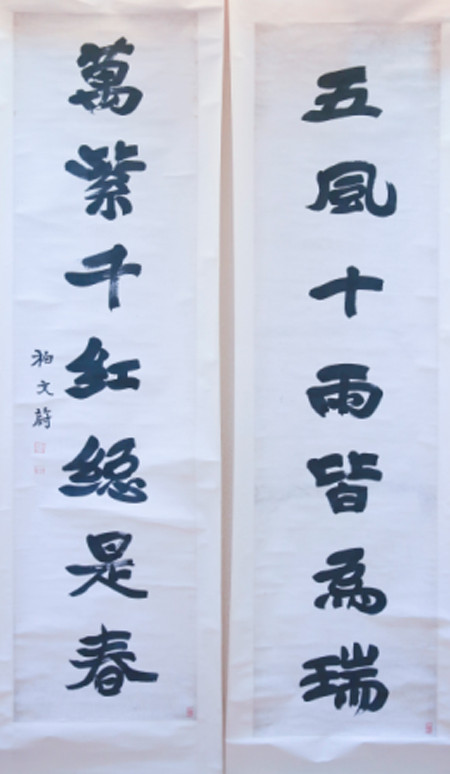 五風十雨皆為瑞
萬紫千紅総是春
柏文蔚